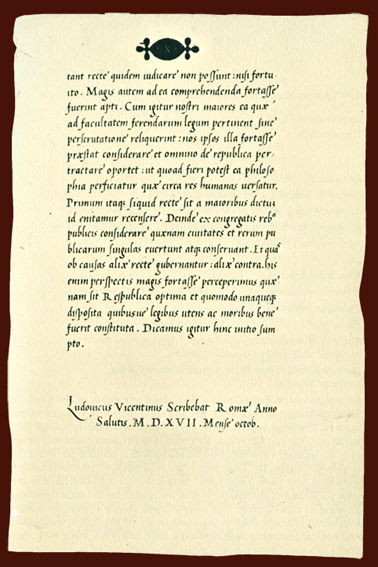 X
tant recte quidem iudicare non possunt: nisi fortu
ito. Magis autem ad ea comprehendenda fortasse
fuerint apti. Cum igitur nostri maiores ea quæ
ad facultatem ferendarum legum pertinent sine
perscrutatione reliquerint: nos ipsos illa fortasse
præstat considerare et omnino de republica per
tractare oportet: ut quoad fieri potest ea philoso
phia perficiatur quæ circa res humanas versatur.
Primum itaq; siquid recte sit a maioribus dictū
id enitamur recensere. Deinde ex congregatis reb⁹
publicis considerare quænam ciuitates et rerum pu
blicarum singulas evertunt atq; conservant. Et quas
ob causas aliæ recte gubernantur: aliæ contra. his
enim perspectis magis fortasse perceperimus quæ
nam sit Respublica optima et quomodo unaqueq;
disposita quibusue legibus utens ac moribus bene
fuerit constituta. Dicamus igitur hinc initio sum
pto.
Ludovicus Vicentinus Scribebat Romæ Anno
Salutis. M.D.XVII. Mense octob.